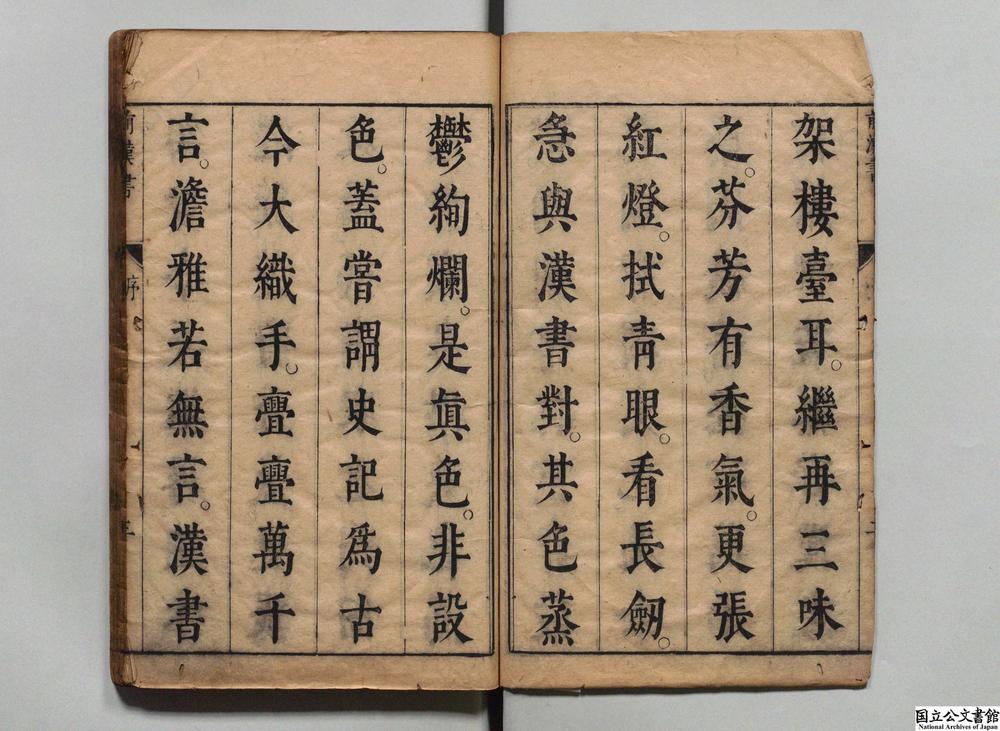 架樓臺耳。繼再三味
之。芬芳有香氣。更張
紅燈。拭靑眼。看長劒。
急與漢書對。其色蒸
鬱絢爛。是眞色。非設
色。葢嘗謂史記爲古
今大織手。亹亹萬千
言。澹雅若無言。漢書
前漢書
序
国立公文書館
National Archives of Japan